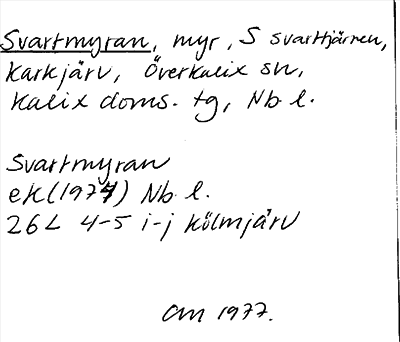 Svartmyran, myr, S svarttjärnen,
Karkjärv, Överkalix sn,
Kalix doms. tg, Nb l.
Svartmyran
ek (1974) Nb l.
26L 4-5 i-j Kölmjärv
CM 1977.